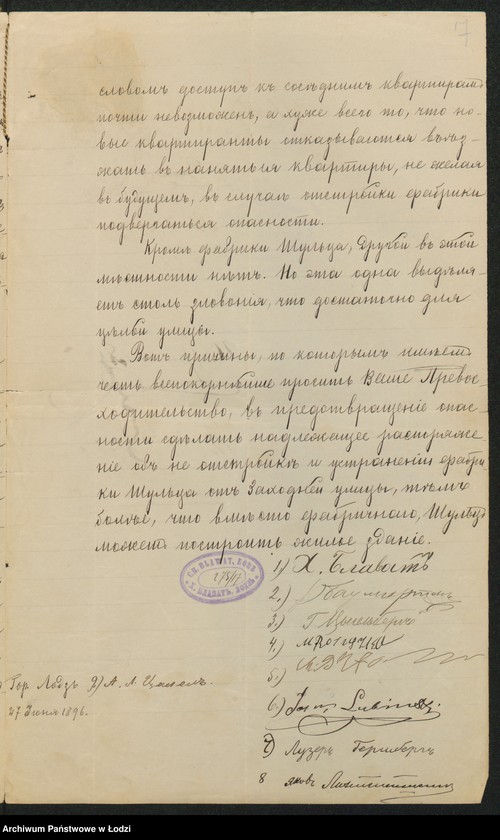 7
словомъ доступъ къ сосѣднимъ квартирамъ
почти невозможенъ, а хуже всего то, что но-
выe квартиранты отказываются въѣз-
жать въ нанятыя квартиры, не желая
въ будущемъ, въ случаѣ отстройки фабрики
подвергаться опасности.
Кромѣ фабрики Шульца, другой въ этой
мѣстности нѣтъ. Но эта одна выдѣля-
етъ столь зловонія, что достаточно для
цѣлой улицы.
Вотъ причины, по которымъ имѣемъ
честь всепокорнѣйше просить Ваше Превос-
ходительство, въ предотвращеніе опас-
ности сдѣлать надлежащее распоряже-
ніе объ не отстройкѣ и устраненіи фабри-
ки Шульца отъ Заходней улицы, тѣмъ
болѣе, что вмѣсто фабричнаго, Шульцъ
можетъ построить жилое зданіе.
1) Х. Блаватъ
CH. BLAWAT, LODZ
Х. БЛАВАТЪ, ЛОДЗЬ
2)
3) Г.
4)
5)
Гор. Лодзь
27 Іюня 1896.
6) Lubinski
7) Лузеръ
8 Яковъ
Archiwum Państwowe w Łodzi